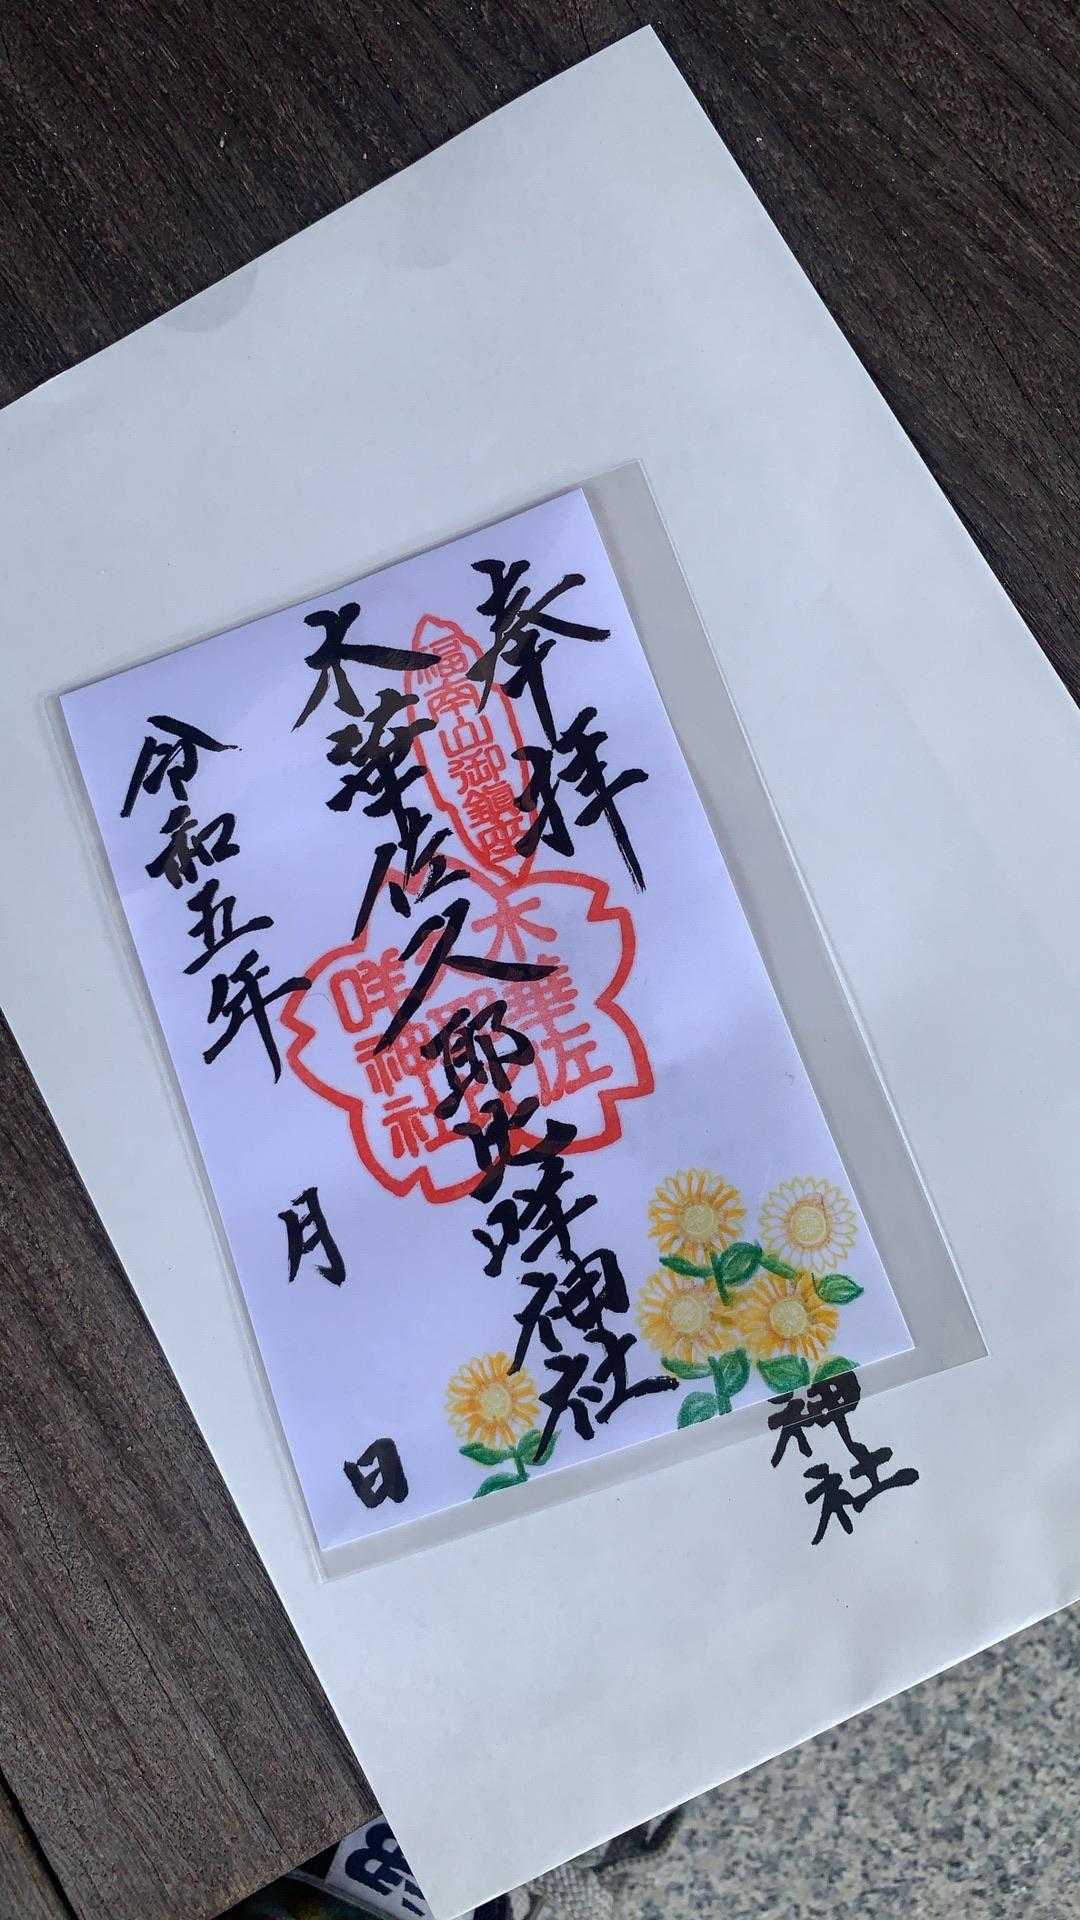 奉拝
福南山御鎮座
木華佐久耶比咩神社
木華佐
咩神社
令和五年
月
日
神社